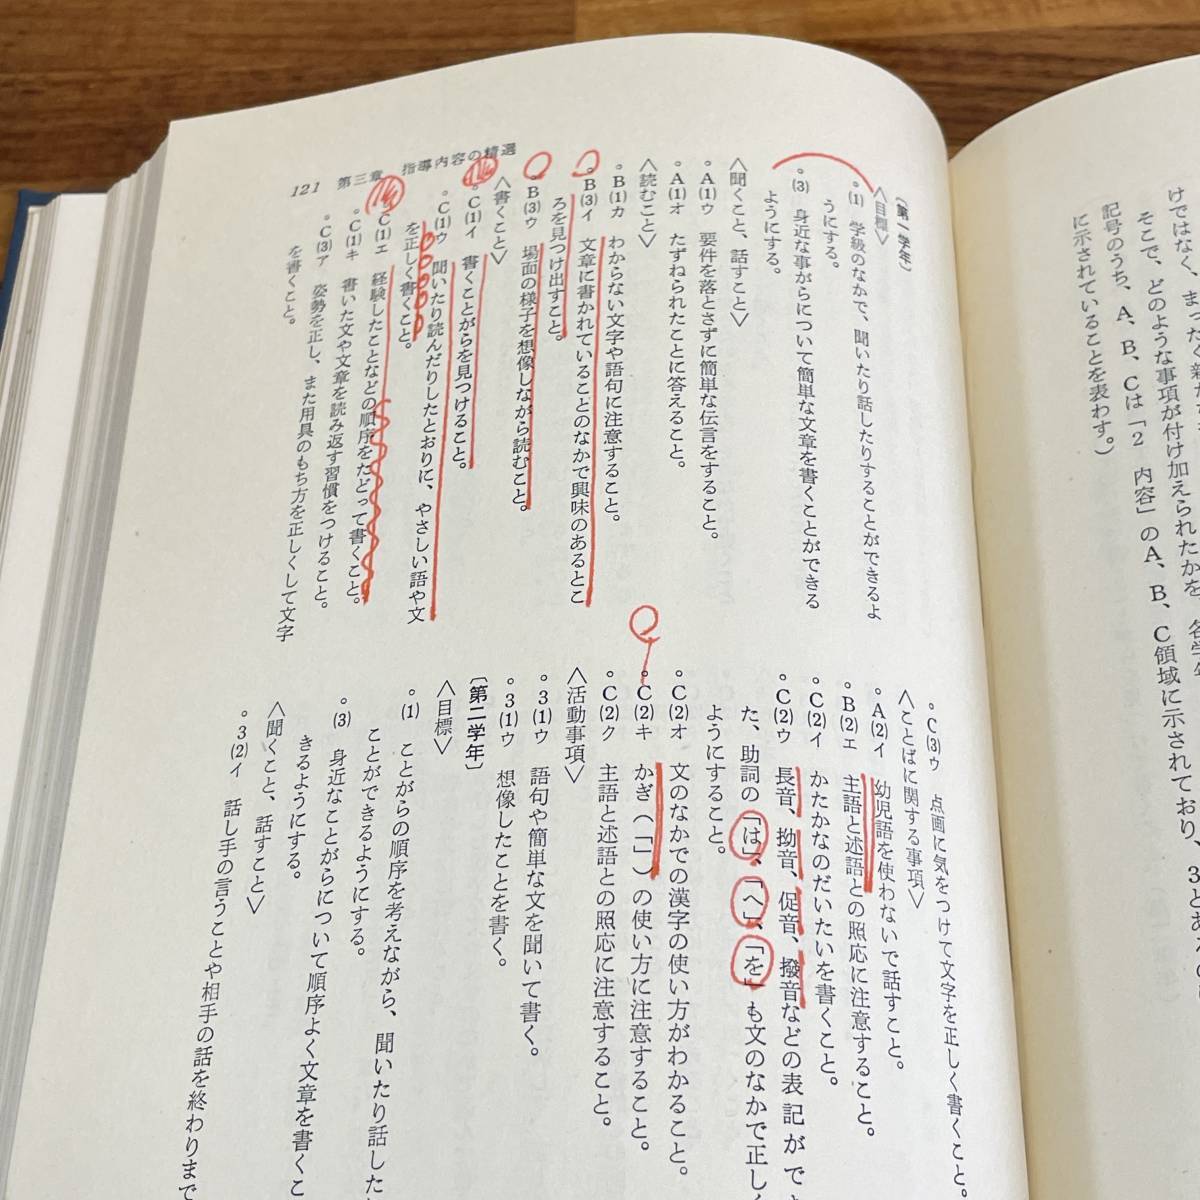 けではなく、まったく新た
そこで、どのような事項が付け加えられたかを、各学年
記号のうち、A、B、Cは「2 内容」のA、B、C領域に示されており、3と
に示されていることを表わす。)
121 第三章 指導内容の精選
〔第一学年〕
〈目標〉
。(1) 学級のなかで、聞いたり話したりすることができるよ
うにする。
。(3) 身近な事がらについて簡単な文章を書くことができる
ようにする。
〈聞くこと、話すこと〉
。A(1)ウ 要件を落とさずに簡単な伝言をすること。
。A(1)オ たずねられたことに答えること。
〈読むこと〉
。B(1)カ わからない文字や語句に注意すること。
。B(3)イ 文章に書かれていることのなかで興味のあるとこ
ろを見つけ出すこと。
。B(3)ウ 場面の様子を想像しながら読むこと。
〈書くこと〉
。C(1)イ 書くことがらを見つけること。
。C(1)ウ 聞いたり読んだりしたとおりに、やさしい語や文
を正しく書くこと。
。C(1)エ 経験したことなどの順序をたどって書くこと。
。C(1)キ 書いた文や文章を読み返す習慣をつけること。
。C(3)ア 姿勢を正し、また用具のもち方を正しくして文字
を書くこと。
。C(3)ウ 点画に気をつけて文字を正しく書くこと。
〈ことばに関する事項〉
。A(2)イ 幼児語を使わないで話すこと。
。B(2)エ 主語と述語との照応に注意すること。
。C(2)イ かたかなのだいたいを書くこと。
。C(2)ウ 長音、拗音、促音、撥音などの表記がで
た、助詞の「は」、「へ」、「を」も文のなかで正しく
ようにすること。
。C(2)オ 文のなかでの漢字の使い方がわかること。
。C(2)キ かぎ(「 」)の使い方に注意すること。
。C(2)ク 主語と述語との照応に注意すること。
〈活動事項〉
。3(1)ウ 語句や簡単な文を聞いて書く。
。3(1)ウ 想像したことを書く。
〔第二学年〕
〈目標〉
。(1) ことがらの順序を考えながら、聞いたり話した
ことができるようにする。
。(3) 身近なことがらについて順序よく文章を書くこ
きるようにする。
〈聞くこと、話すこと〉
。3(2)イ 話し手の言うことや相手の話を終わりまで